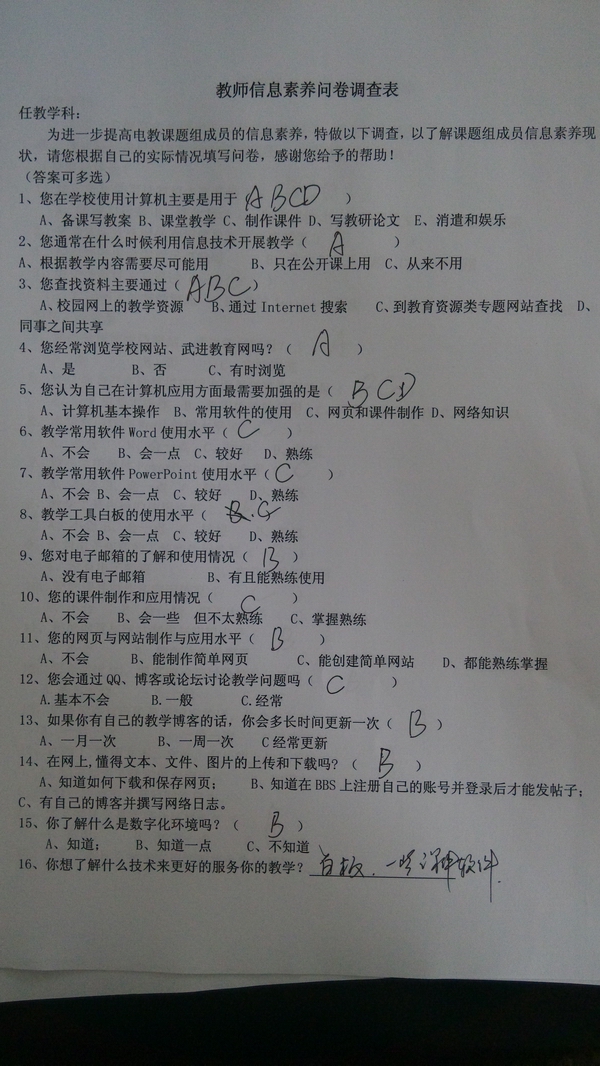 教师信息素养问卷调查表
任教学科：
为进一步提高电教课题组成员的信息素养，特做以下调查，以了解课题组成员信息素养现
状，请您根据自己的实际情况填写问卷，感谢您给予的帮助！
（答案可多选）
1、您在学校使用计算机主要是用于 ABCD ）
A、备课写教案 B、课堂教学 C、制作课件 D、写教研论文 E、消遣和娱乐
2、您通常在什么时候利用信息技术开展教学（ A ）
A、根据教学内容需要尽可能用 B、只在公开课上用 C、从来不用
3、您查找资料主要通过（ ABC ）
A、校园网上的教学资源 B、通过 Internet 搜索 C、到教育资源类专题网站查找 D、
同事之间共享
4、您经常浏览学校网站、武进教育网吗？（ A ）
A、是 B、否 C、有时浏览
5、您认为自己在计算机应用方面最需要加强的是（ BCD ）
A、计算机基本操作 B、常用软件的使用 C、网页和课件制作 D、网络知识
6、教学常用软件 Word 使用水平（ C ）
A、不会 B、会一点 C、较好 D、熟练
7、教学常用软件 PowerPoint 使用水平（ C ）
A、不会 B、会一点 C、较好 D、熟练
8、教学工具白板的使用水平（ C
A、不会 B、会一点 C、较好 D、熟练
9、您对电子邮箱的了解和使用情况（ B ）
A、没有电子邮箱 B、有且能熟练使用
10、您的课件制作和应用情况（ C ）
A、不会 B、会一些 但不太熟练 C、掌握熟练
11、您的网页与网站制作与应用水平（ B ）
A、不会 B、能制作简单网页 C、能创建简单网站 D、都能熟练掌握
12、您会通过 QQ、博客或论坛讨论教学问题吗（ C ）
A.基本不会 B.一般 C.经常
13、如果你有自己的教学博客的话，你会多长时间更新一次（ B ）
A、一月一次 B、一周一次 C 经常更新
14、在网上,懂得文本、文件、图片的上传和下载吗？（ B ）
A、知道如何下载和保存网页； B、知道在 BBS 上注册自己的账号并登录后才能发帖子；
C、有自己的博客并撰写网络日志。
15、你了解什么是数字化环境吗？（ B ）
A、知道； B、知道一点 C、不知道
16、你想了解什么技术来更好的服务你的教学？ 白板、一些 软件.